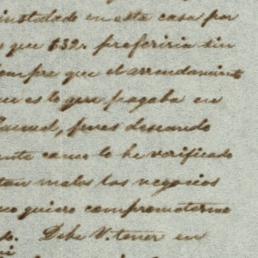 instalado en esta casa por
que $32 preferiria sin
empre que el arrendamient
ue es lo que pagaba en
pues deseando
ente como lo he verificado
tan malos los negocios
no quiero comprometerme
Debe V. tener en